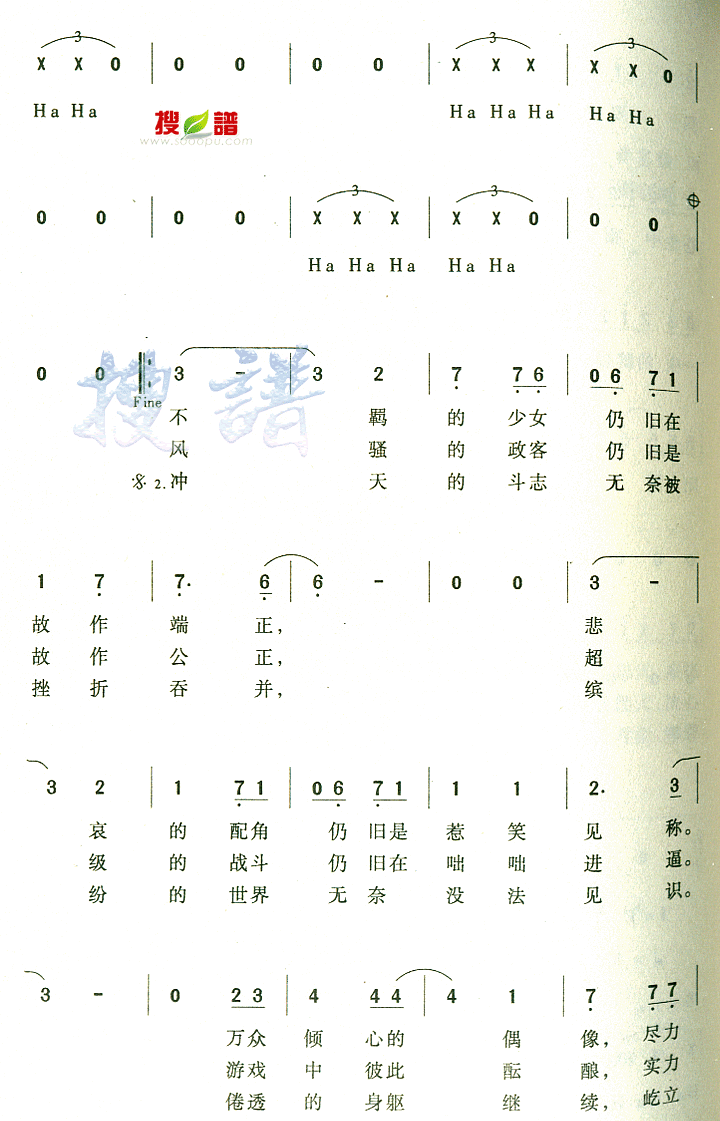 3 3 3
X X 0 | 0 0 | 0 0 | X X X | X X 0 |
Ha Ha Ha Ha Ha Ha Ha
搜谱
www.sooopu.com
3 3
0 0 | 0 0 | X X X | X X 0 | 0 0 |
Ha Ha Ha Ha Ha
0 0 3 - | 3 2 | 7 7 6 | 0 6 7 1 |
搜谱
Fine
不 羁 的 少女 仍 旧在
风 骚 的 政客 仍 旧是
2.冲 天 的 斗志 无 奈被
1 7 | 7· 6 | 6 - | 0 0 | 3 - |
故 作 端 正, 悲
故 作 公 正, 超
挫 折 吞 并, 缤
3 2 | 1 7 1 | 0 6 7 1 | 1 1 | 2· 3 |
哀 的 配角 仍 旧是 惹 笑 见 称。
级 的 战斗 仍 旧在 咄 咄 进 逼。
纷 的 世界 无 奈 没 法 见 识。
3 - | 0 2 3 | 4 4 4 | 4 1 | 7 7 7 |
万众 倾 心的 偶 像, 尽力
游戏 中 彼此 酝 酿, 实力
倦透 的 身躯 继 续, 屹立